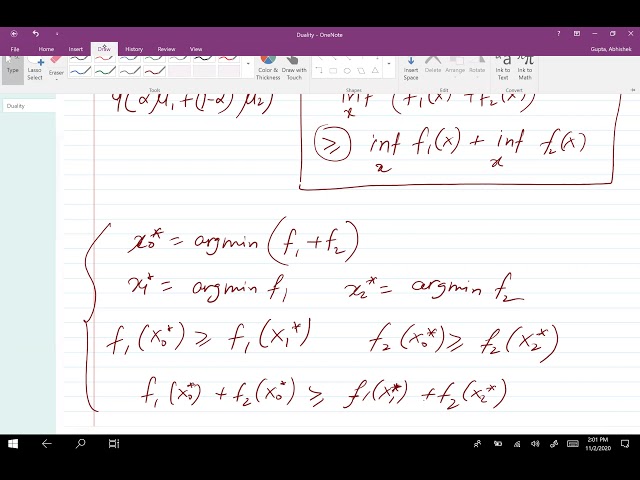 Duality - OneNote
Gupta, Abhishek
File Home Insert Draw History Review View
Type Lasso Select Eraser Color & Thickness Draw with Touch Insert Space Delete Arrange Rotate Ink to Text Ink to Math
Tools Shapes Edit Convert
Duality
q(αμ₁+(1-α)μ₂)
inf x (f₁(x)+f₂(x))
≥ inf x f₁(x) + inf x f₂(x)
x₀* = argmin (f₁ + f₂)
x₁* = argmin f₁ x₂* = argmin f₂
f₁(x₀*) ≥ f₁(x₁*) f₂(x₀*) ≥ f₂(x₂*)
f₁(x₀*) + f₂(x₀*) ≥ f₁(x₁*) + f₂(x₂*)
2:01 PM
11/2/2020